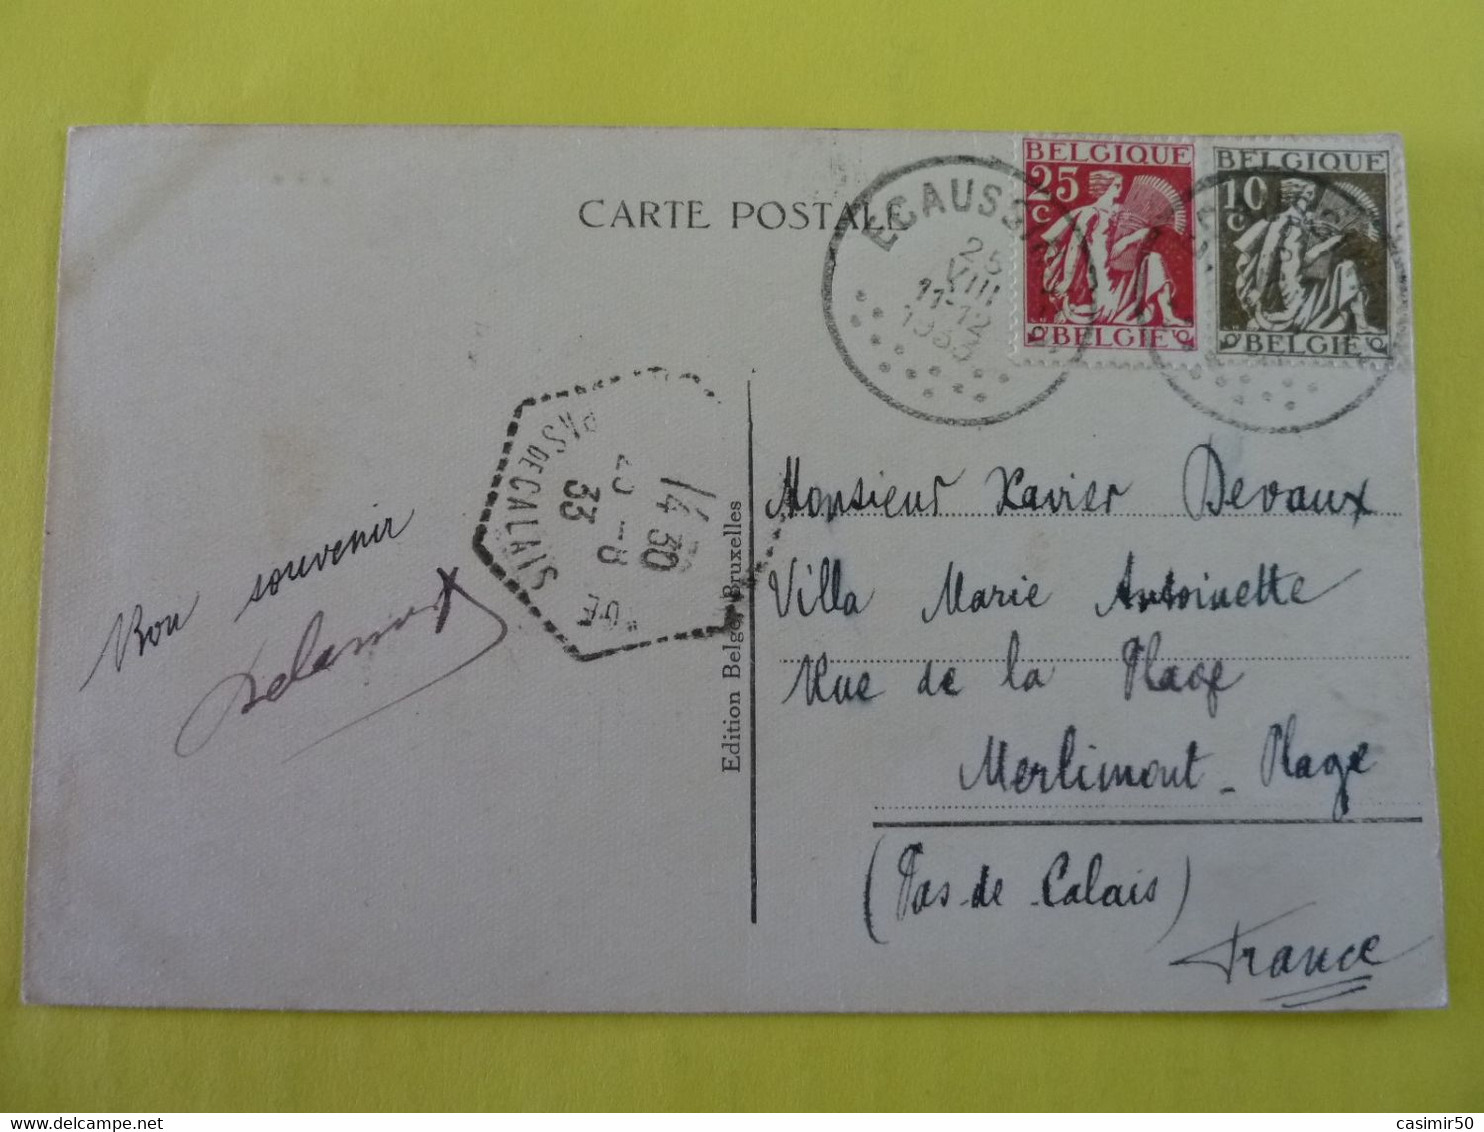 CARTE POSTALE
ECAUSSIN
25
VIII
11-12
1933
BELGIQUE
25
C
BELGIE
BELGIQUE
10
C
BELGIE
PAS DE CALAIS
14 30
-8
33
Edition Belge, Bruxelles
Bon souvenir
Monsieur Xavier Devaux
Villa Marie Antoinette
Rue de la Plage
Merlimont - Plage
(Pas-de-Calais)
France
casimir50